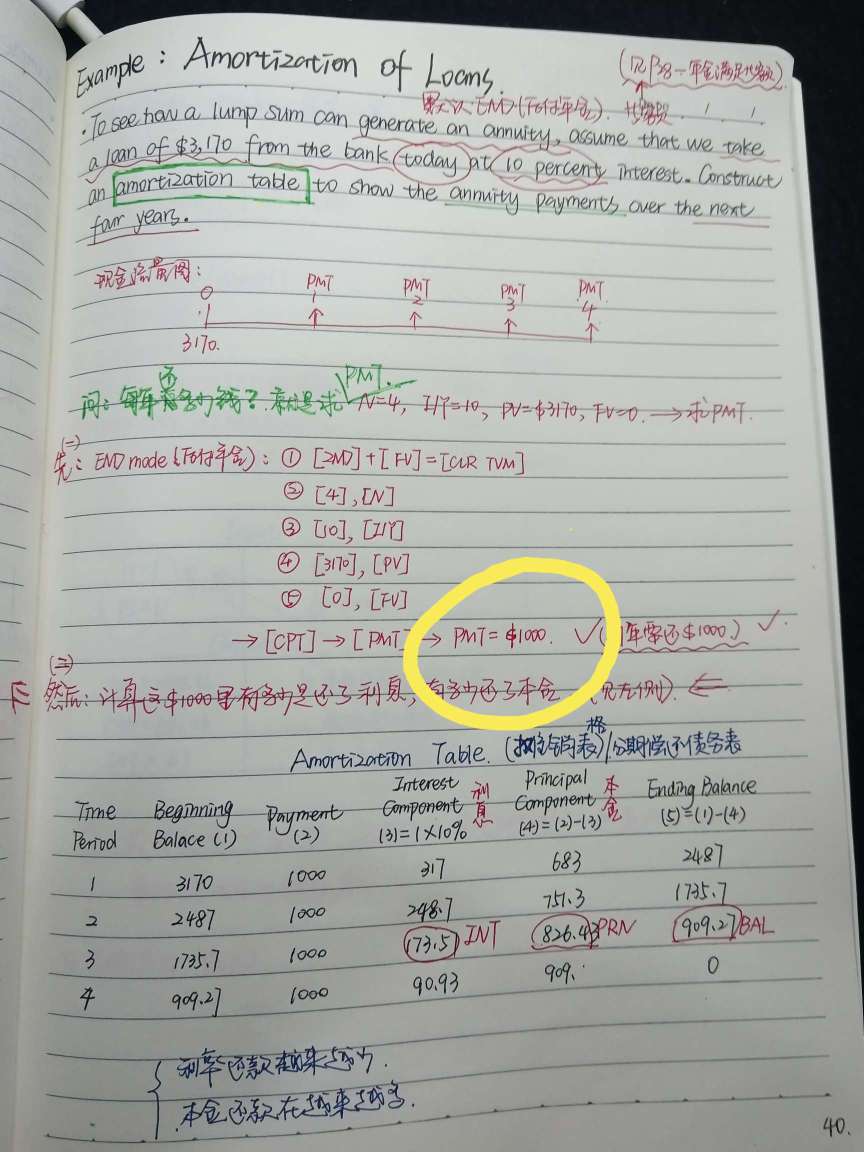 Example : Amortization of Loans.
(见P38-年金满足
默认END(后付年金).
·To see how a lump sum can generate an annuity, assume that we take
a loan of $3,170 from the bank today at 10 percent interest. Construct
an amortization table to show the annuity payments over the next
four years.
现金流量图:
0 PMT 1 PMT 2 PMT 3 PMT 4
3170.
问: 每年还多少钱? 就是求PMT. N=4, I/Y=10, PV=$3170, FV=0. → 求PMT.
(一)
先: END mode (后付年金): ① [2ND]+[FV]=[CLR TVM]
② [4],[N]
③ [10],[I/Y]
④ [3170],[PV]
⑤ [0],[FV]
→[CPT]→[PMT]→ PMT=$1000. ✓(年需还$1000.) ✓
(二)
然后: 计算这$1000里有多少是还了利息, 有多少还了本金 (见左侧). ←
Amortization Table. (摊销表格)/分期偿还债务表
Time Period Beginning Balace (1) Payment (2) Interest Component (3)=1×10% 利息 Principal Component (4)=(2)-(3) 本金 Ending Balance (5)=(1)-(4)
1 3170 1000 317 683 2487
2 2487 1000 248.7 751.3 1735.7
3 1735.7 1000 173.5) INT 826.43 PRN 909.27 BAL
4 909.27 1000 90.93 909. 0
利率还款越来越少.
本金还款在越来越多.
40.